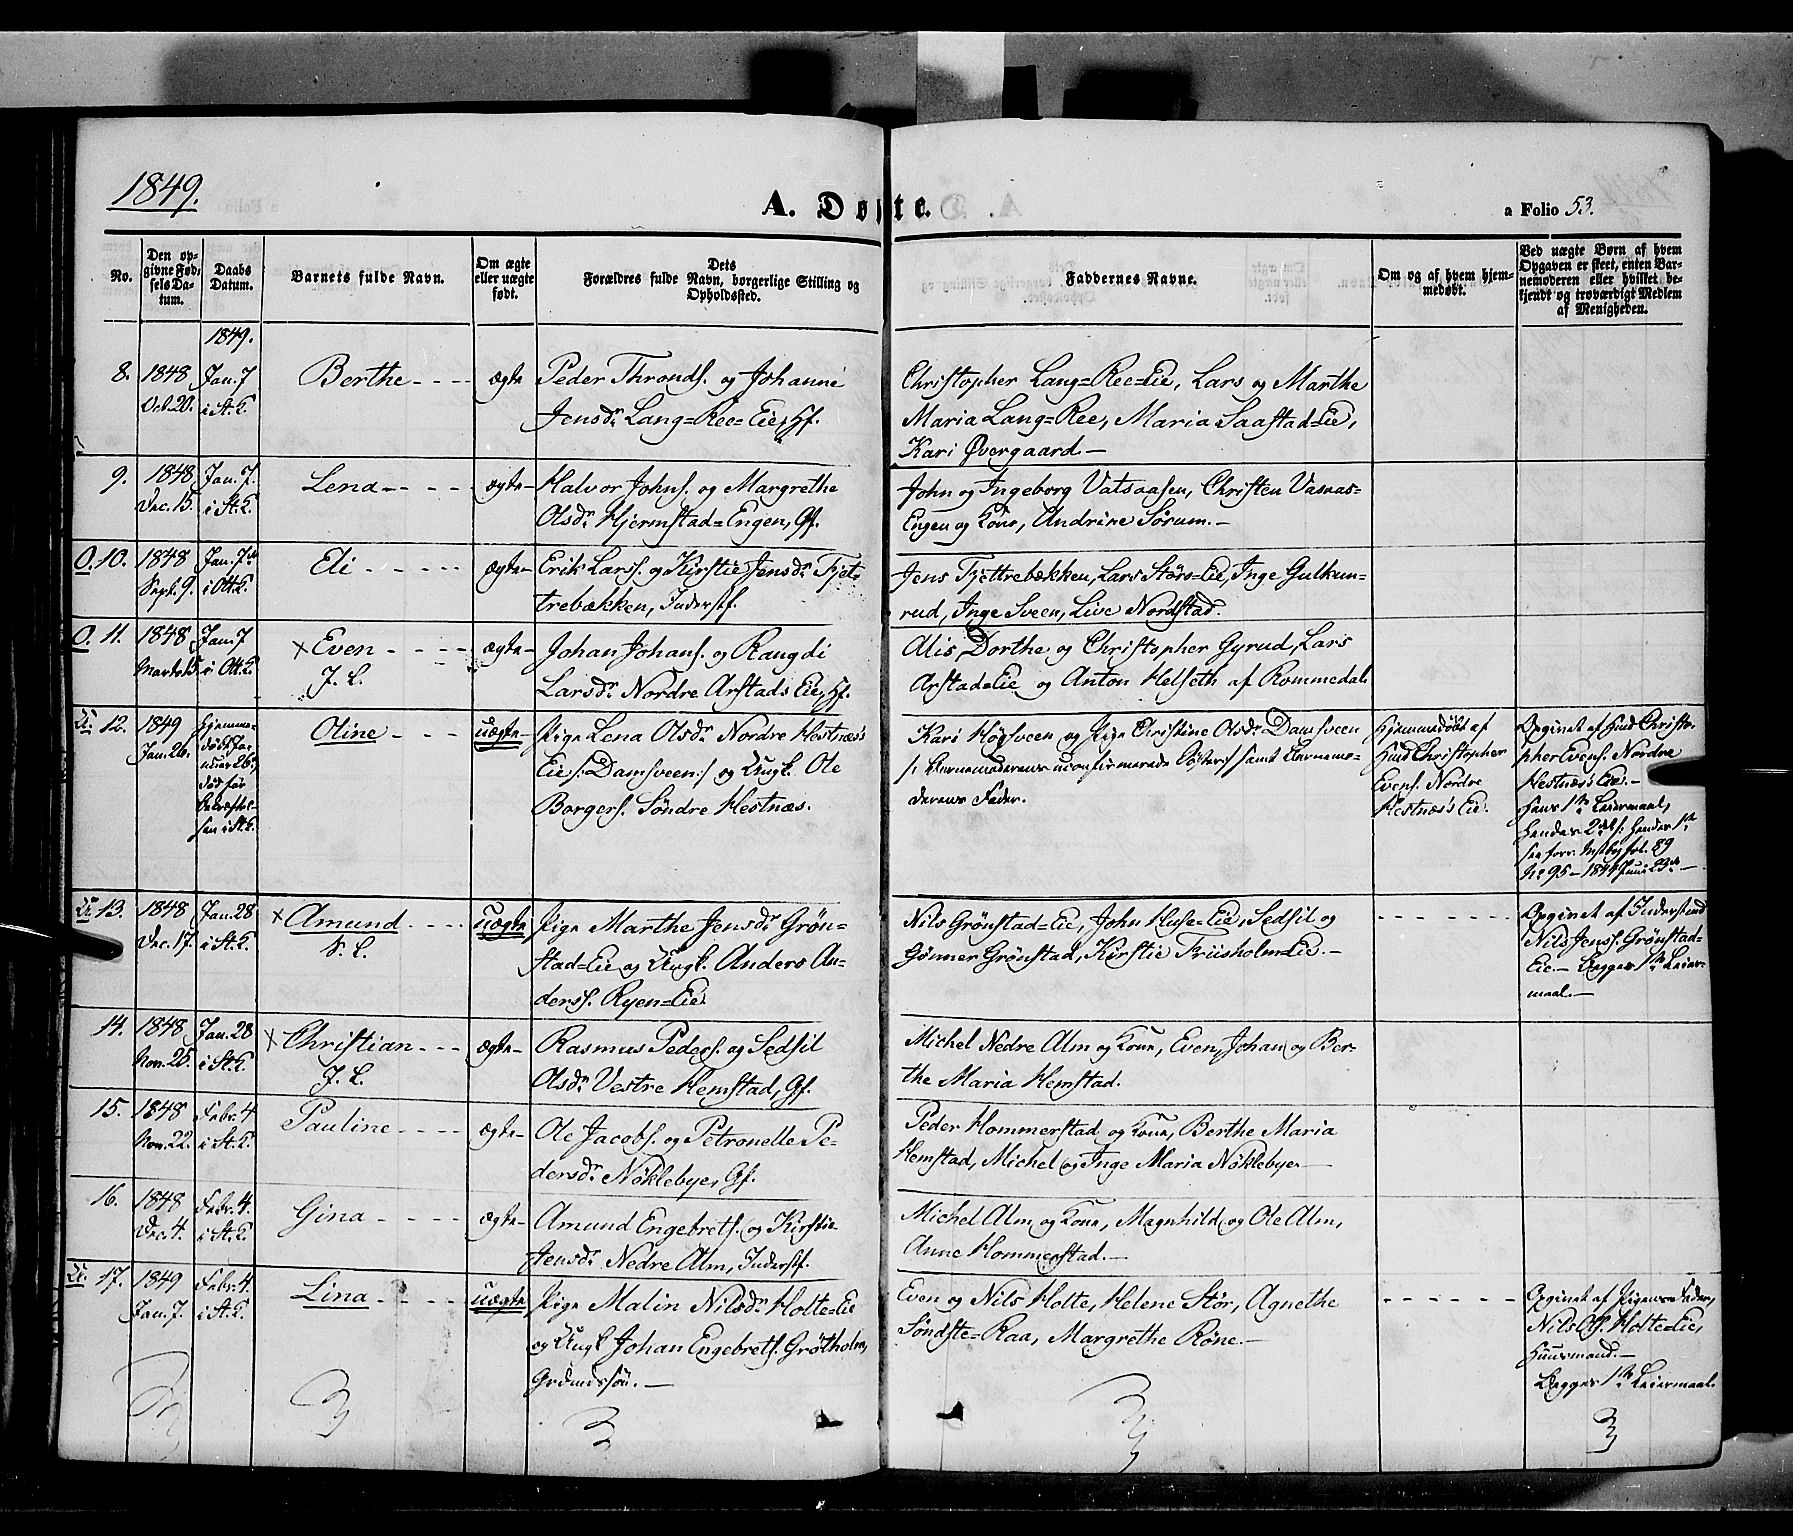 1849.
A. Døbte.
a Folio 53.
No.
Den op-
givne Fød-
sels Da-
tum.
Daabs
Datum.
Barnets fulde Navn.
Om ægte
eller uægte
født.
Forældres fulde Navn, Dets borgerlige Stilling og
Opholdssted.
Faddernes Navne.
Om og af hvem hjem-
medøbt.
Ved uægte Børn af hvem
Opgaven er skeet, enten Bar-
nemoderen eller hvilket be-
kjendt og troværdigt Medlem
af Menigheden.
1849.
8. 1848 Jan. 7 Berthe ægte Peder Thronds. og Johanne
Oct. 20. i St. K. Jensdr. Lang=Ree=Eie, Hf.
Christopher Lang=Ree=Eie, Lars og Marthe
Maria Lang=Ree, Maria Saastad=Eie,
Kari Øvergaard.—
9. 1848 Jan. 7. Lena ægte Halvor Johns. og Margrethe
Dec. 15. i St. K. Olsdr. Hjermstad=Engen, Gf.
John og Ingeborg Vatsaasen, Christen Vasaas=
Engen og Kone, Andrine Sørum.—
O. 10. 1848 Jan. 7de Eli ægte Erik Larss. og Kirstie Jensdr. Tjet-
Sept. 9. i Ott. K. trebækken, Inderstf.
Jens Tjettrebækken, Lars Störs=Eie, Inge Gulkun-
rud, Inge Sveen, Live Nordstad.
O. 11. 1848 Jan. 7 × Even ægte Johan Johans. og Rangdi
i Ott. K. J. L. Larsdr. Nordre Arstads Eie, Hf.
Alis, Dorthe og Christopher Gyrud, Lars
Arstad=Eie og Anton Helseth af Rommedal.
U. 12. 1849 Hjemme- Oline uægte Pige Lena Olsdr. Nordre Hestnæs's
Jan. 26. døbt Ja- Eie /: Damsveen :/ og Ungk. Ole
nuar 26, Borgers. Søndre Hestnæs.
død før
Bekræftel-
sen i St. K.
Kari Høgsveen og Pige Christine Olsdr. Damsveen
/: Barnemoderens uconfirmerede Søster :/ samt Barnemo-
derens Fader.
Hjemmedøbt af
Huusmd Christopher
Evens. Nordre
Hestnæs's Eie.
Opgivet af Huusmd Christo-
pher Evens. Nordre
Hestnæs's Eie.—
Hans 1ste Leiermaal,
Hendes 2det /: Hendes 1ste
see forr. Mstbog fol. 89
No 95 — 1844 Juni 23de.—
U. 13. 1848 Jan. 28 × Amund uægte Pige Marthe Jensdr. Grön-
Dec. 17. i St. K. S. L. stad=Eie og Ungk. Anders An-
derss. Ryen=Eie
Nils Grønstad=Eie, John Huse=Eie, Sedsil og
Gunner Grønstad, Kirstie Friisholm=Eie.—
Opgivet af Inderstmd
Nils Jenss. Grønstad=
Eie.— Begges 1ste Leier-
maal.—
14. 1848 Jan. 28 × Christian ægte Rasmus Peders. og Sedsil
Nov. 25. i St. K. J. L. Olsdr. Vestre Hemstad, Gf.
Michel Nedre Alm og Kone, Even, Johan og Ber-
the Maria Hemstad.
15. 1848 Febr. 4 Pauline ægte Ole Jacobs. og Petronelle Pe-
Nov. 22. i St. K. dersdr. Nöklebye, Gf.
Peder Hommerstad og Kone, Berthe Maria
Hemstad, Michel og Inge Maria Nöklebye.—
16. 1848 Febr. 4. Gina ægte Amund Engebrets. og Kirstie
Dec. 4. i St. K. Jensdr. Nedre Alm, Inderstf.
Michel Alm og Kone, Magnhild og Ole Alm,
Anne Hommerstad.—
U. 17. 1849 Febr. 4. Lina uægte Pige Malin Nilsdr. Holte=Eie
Jan. 7. i St. K. og Ungk. Johan Engebrets. Grøtholm,
Even og Nils Holte, Helene Stör, Agnethe
Söndste=Raa, Margrethe Röne.—
Opgivet af Pigens Fader,
Nils Ols. Holte=Eie,
Huusmand.—
Begges 1ste Leiermaal.